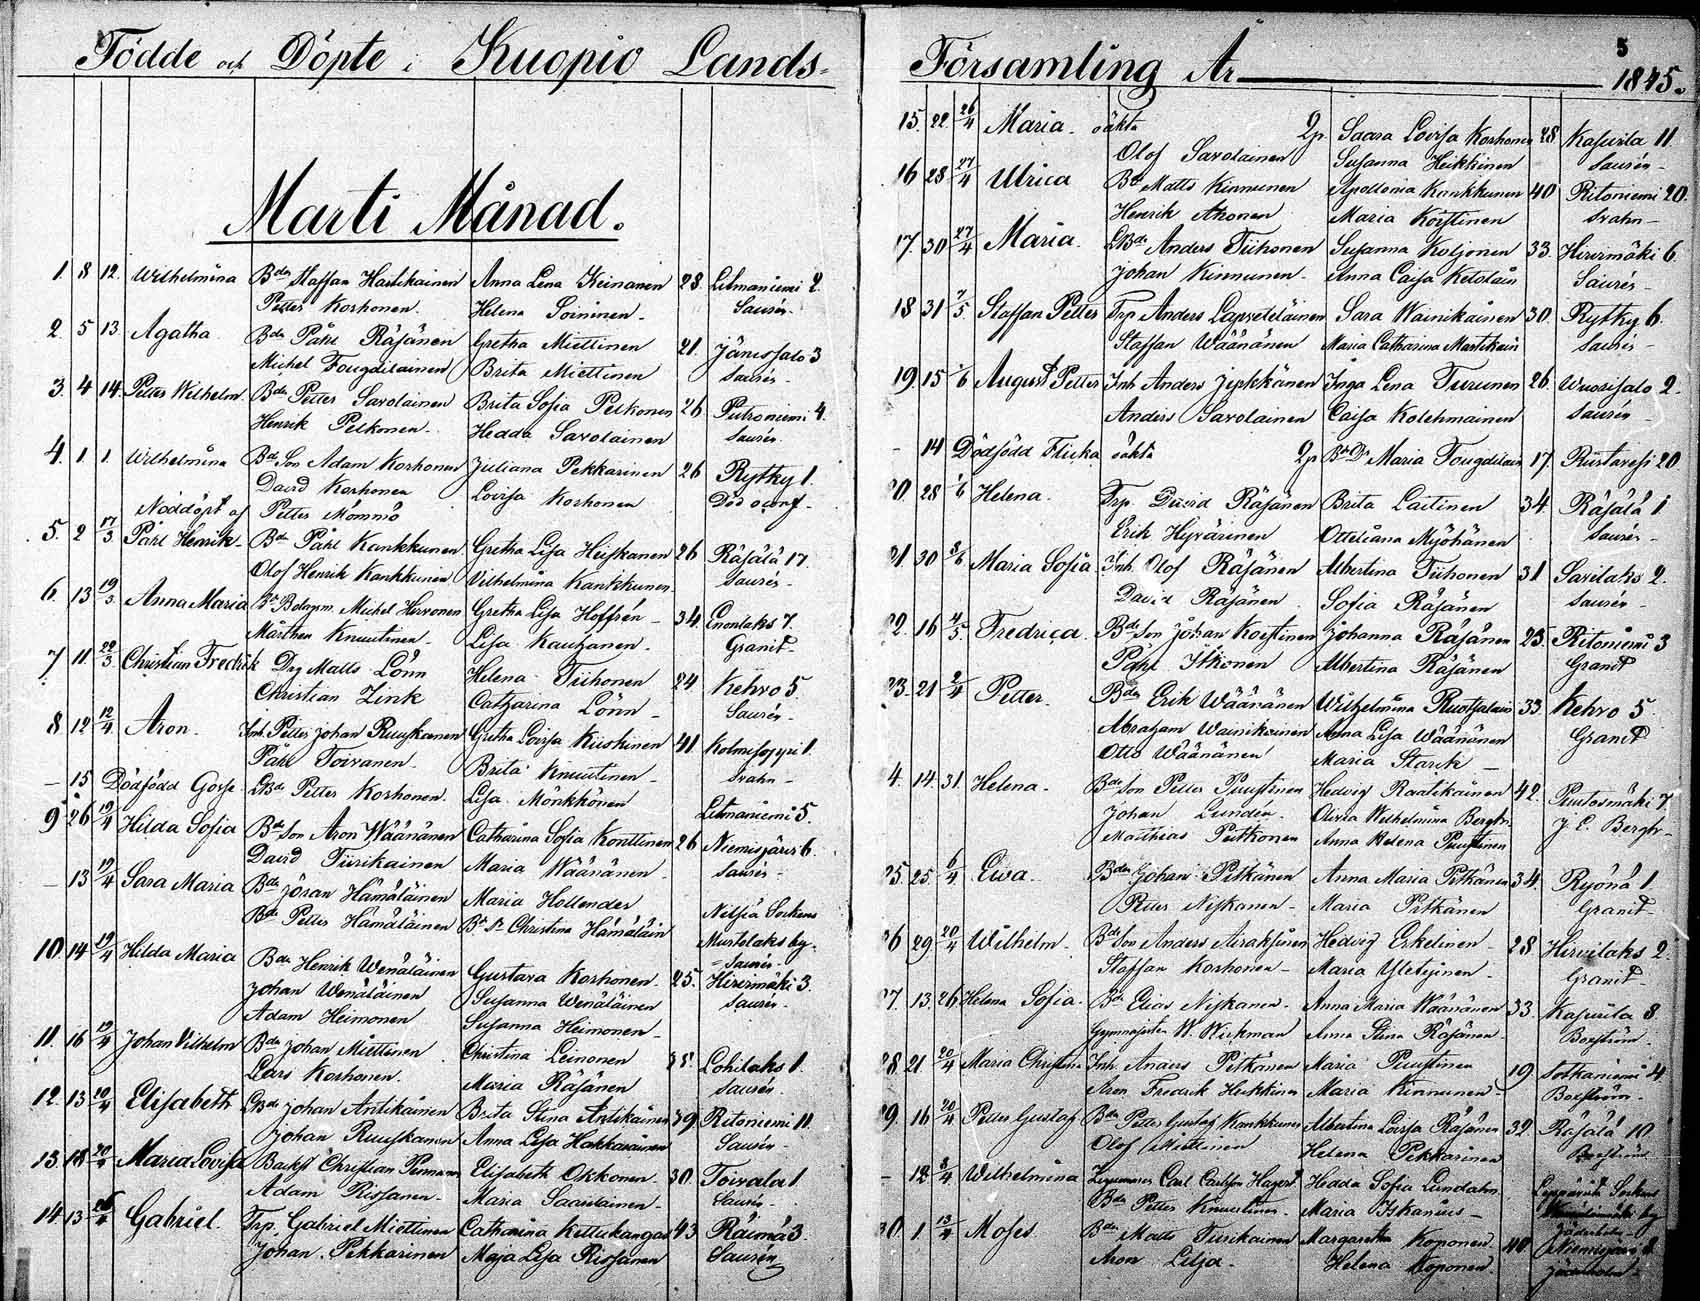 Födde och Döpte i Kuopio Lands-
Församling År 1845.
5
Marti Månad.
1. 8 12. Wilhelmina Bdn Staffan Hartikainen Anna Lena Keinänen 28. Litmaniemi 2.
Petter Korhonen. Helena Soininen - Saurén -
2. 5 13 Agatha Bdn Påhl Räsänen Gretha Miettinen 21. Jänissalo 3
Michel Fougdilainen Brita Miettinen Saurén -
3. 4 14. Petter Wilhelm. Bdn Petter Savolainen Brita Sofia Pelkonen 26 Putroniemi 4.
Henrik Pelkonen. Hedda Savolainen Saurén.
4. 1 1. Wilhelmina Bd Son Adam Korhonen Juliana Pekkarinen 26 Rytky 1.
David Korhonen Lovisa Korhonen Död
Nöddöpt af Petter Mömmö
5. 2 17/3 Påhl Henrik - Bd Påhl Kankkunen Gretha Lisa Heiskanen 26 Räsälä 17.
Olof Henrik Kankkunen Vilhelmina Kankkunen Saurén -
6. 13 19/3 Anna Maria Michel Hirvonen Gretha Lisa Hoffrén - 34. Enonlaks 7.
Mårthen Knuutinen. Lisa Kauhanen. Granit -
7 11 22/3 Christian Fredrik Drg Matts Lönn Helena Tiihonen 24 Kehvo 5.
Christian Zink Catharina Lönn - Saurén -
8 12 12/4 Aron. Inh. Petter Johan Ruuskanen Gretha Lovisa Kiiskinen 41 Kolmisoppi 1.
Påhl Toivanen. Brita Knuutinen - Svahn -
- 15 Dödfödd Gosse LBd Petter Korhonen. Lisa Mönkkönen Litmaniemi 5.
9 26 19/4 Hilda Sofia Bd Son Aron Wäänänen Catharina Sofia Konttinen 26 Niemisjärvi 6
David Tiirikainen Maria Wäänänen. Saurén -
- 13 19/4 Sara Maria Bdn Jöran Hämäläinen Maria Hollender Nilsiä Sockens
Bdn Petter Hämäläinen Christina Hämäläin Murtolaks by.
Saurén -
10 14 19/4 Hilda Maria Bdn Henrik Wenäläinen Gustava Korhonen. 25. Hirvimäki 3.
Johan Wenäläinen Susanna Wenäläinen Saurén -
Adam Heimonen Susanna Heimonen -
11. 16 19/4 Johan Vilhelm Bdn Johan Miettinen Christina Leinonen 38. Lohilaks 1.
Lars Korhonen. Maria Räsänen Saurén
12. 13 20/4 Elisabeth LBd Johan Antikainen Brita Stina Antikainen 39. Ritoniemi 11.
Johan Ruuskanen Anna Lisa Hakkarainen Saurén -
13. 18 20/4 Maria Lovisa Christian Elisabeth Okkonen 30. Toivala 1
Adam Rissanen - Maria Saastainen - Saurén -
14. 13 26/4 Gabriel. Trp. Gabriel Miettinen Catharina Kettukangas 43 Räimä 3.
Johan Pekkarinen Maja Lisa Rissanen Saurén
15. 22 26/4 Maria - oäkta Qp. Saara Lovisa Korhonen 28 Kasurila 11
Olof Savolainen Susanna Heikkinen Saurén -
16 28 27/4 Ulrica Bd Matts Kinnunen Apollonia Kankkunen 40 Ritoniemi 20.
Henrik Ahonen Maria Koistinen Svahn -
17. 30 27/4 Maria. LBdn Anders Tiihonen Susanna Koljonen 33. Hirvimäki 6.
Johan Kinnunen - Anna Caisa Ketolain Saurén -
18 31 7/5 Staffan Petter Trp Anders Lapveteläinen Sara Wainikainen 30. Rytky 6.
Staffan Wäänänen Maria Catharina Martikain Saurén -
19. 15 1/6 August Petter Inh Anders Jeskkänen Inga Lena Turunen 26. Wuorisalo 2.
Anders Savolainen Caisa Kolehmainen Saurén
- 14 Dödfödd Flicka oäkta Qp Maria Fougdilain 17. Rustavesi 20
20. 28 1/6 Helena. Trp. David Räsänen Brita Laitinen 34. Räsälä 1
Erik Hyvärinen Otteliana Myöhänen Saurén -
21 30 8/6 Maria Sofia Inh. Olof Räsänen Albertina Tiihonen 31 Savilaks 2.
David Räsänen Sofia Räsänen Saurén -
22. 16 4/5 Fredrica. Bd Son Johan Koistinen Johanna Räsänen 23. Ritoniemi 3
Påhl Itkonen Albertina Räsänen Granit
23. 21 2/4 Petter. Bdn Erik Wäänänen Wilhelmina Ruotsalain 33. Kehvo 5
Abraham Wainikainen Anna Lisa Wäänänen Granit
Otto Wäänänen Maria Starck -
4. 14 31. Helena. Bd Son Petter Puustinen Hedvig Raatikainen 42. Puutosmäki 7
Johan Lundén. Olivia Wilhelmina Bergh J. E. Bergh
Matthias Pitkonen Anna Helena Puustinen
25. 25 6/4 Ewa - Bdn Johan Pitkänen Anna Maria Pitkänen 34. Ryönä 1
Petter Niskanen - Maria Pitkänen Granit -
26 29 20/4 Wilhelm. Bd Son Anders Airaksinen Hedvig Eskelinen - 28 Hirvilaks 2.
Staffan Korhonen - Maria Yletyinen. Granit -
27. 13. 26 Helena Sofia. Bd Elias Niskanen. Anna Maria Wäänänen 33. Kasurila 8
Gymnasisten W. Wichman Anna Stina Räsänen. Boxström -
28. 21 20/4 Maria Christina Inh Anders Pitkänen Maria Puustinen 19 Sotkaniemi 4
Aron Fredrik Heikkinen Maria Kinnunen - Boxström -
29. 16 20/4 Petter Gustaf Bdn Petter Gustaf Kankkunen Albertina Lovisa Räsänen 32. Räsälä 10
Olof Miettinen Helena Pekkarinen Boxström
- 12 3/4 Wilhelmina Carl Carlsson Hedda Sofia Lundahn. Leppävirta Sockens
Bdn Petter Knuutinen. Maria Iskanius - by
30. 1 13/4 Moses Bdn Matts Tiirikainen Margaretha Koponen. 40. Niemisjärvi 2
Aron Lilja. Helena Koponen.